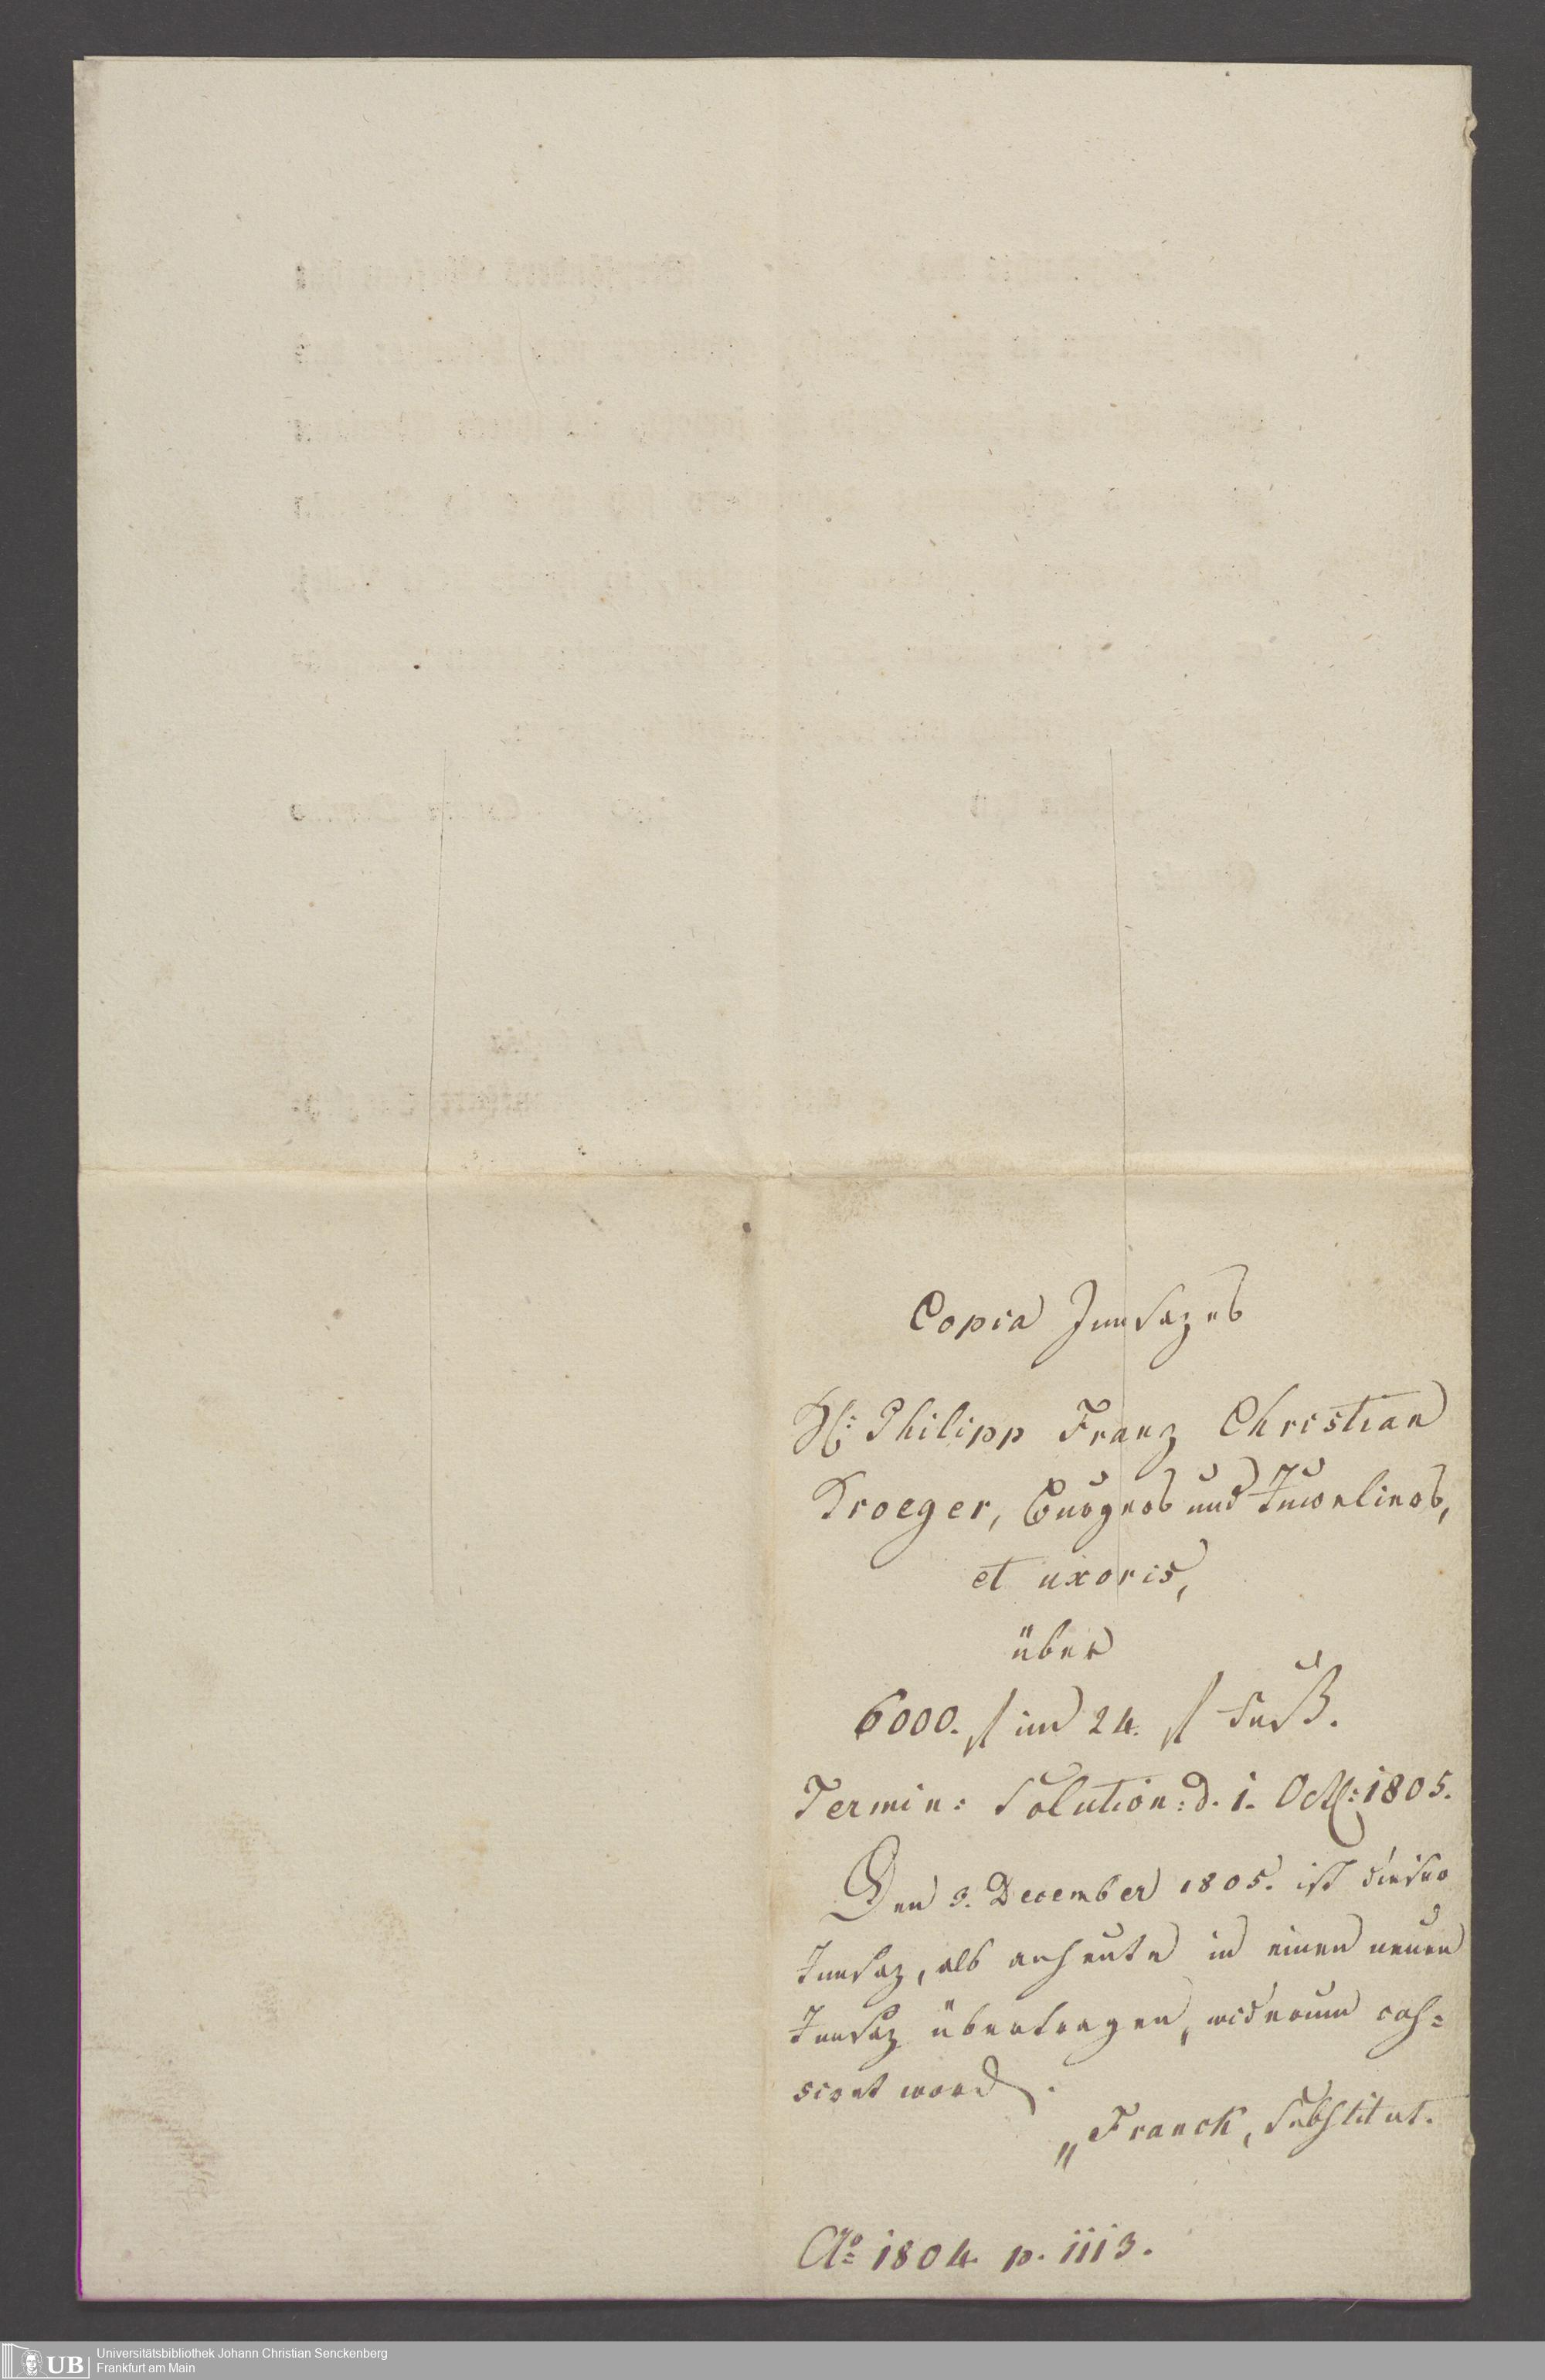 Copia Innsazes
H: Philipp Franz Christian
Kroeger, Burgers und Juweliers,
et uxoris,
über
6000. fl im 24. fl Fuß.
Termin: Solution: d. 1. Octbr: 1805.
Den 3. December 1805. ist dieser
Innsaz, als anheute in einen neuen
Innsaz übertragen, widerum cas=
sirt word.
„Franck, Substitut.
Ao 1804. p. 1113.
UB Universitätsbibliothek Johann Christian Senckenberg
Frankfurt am Main